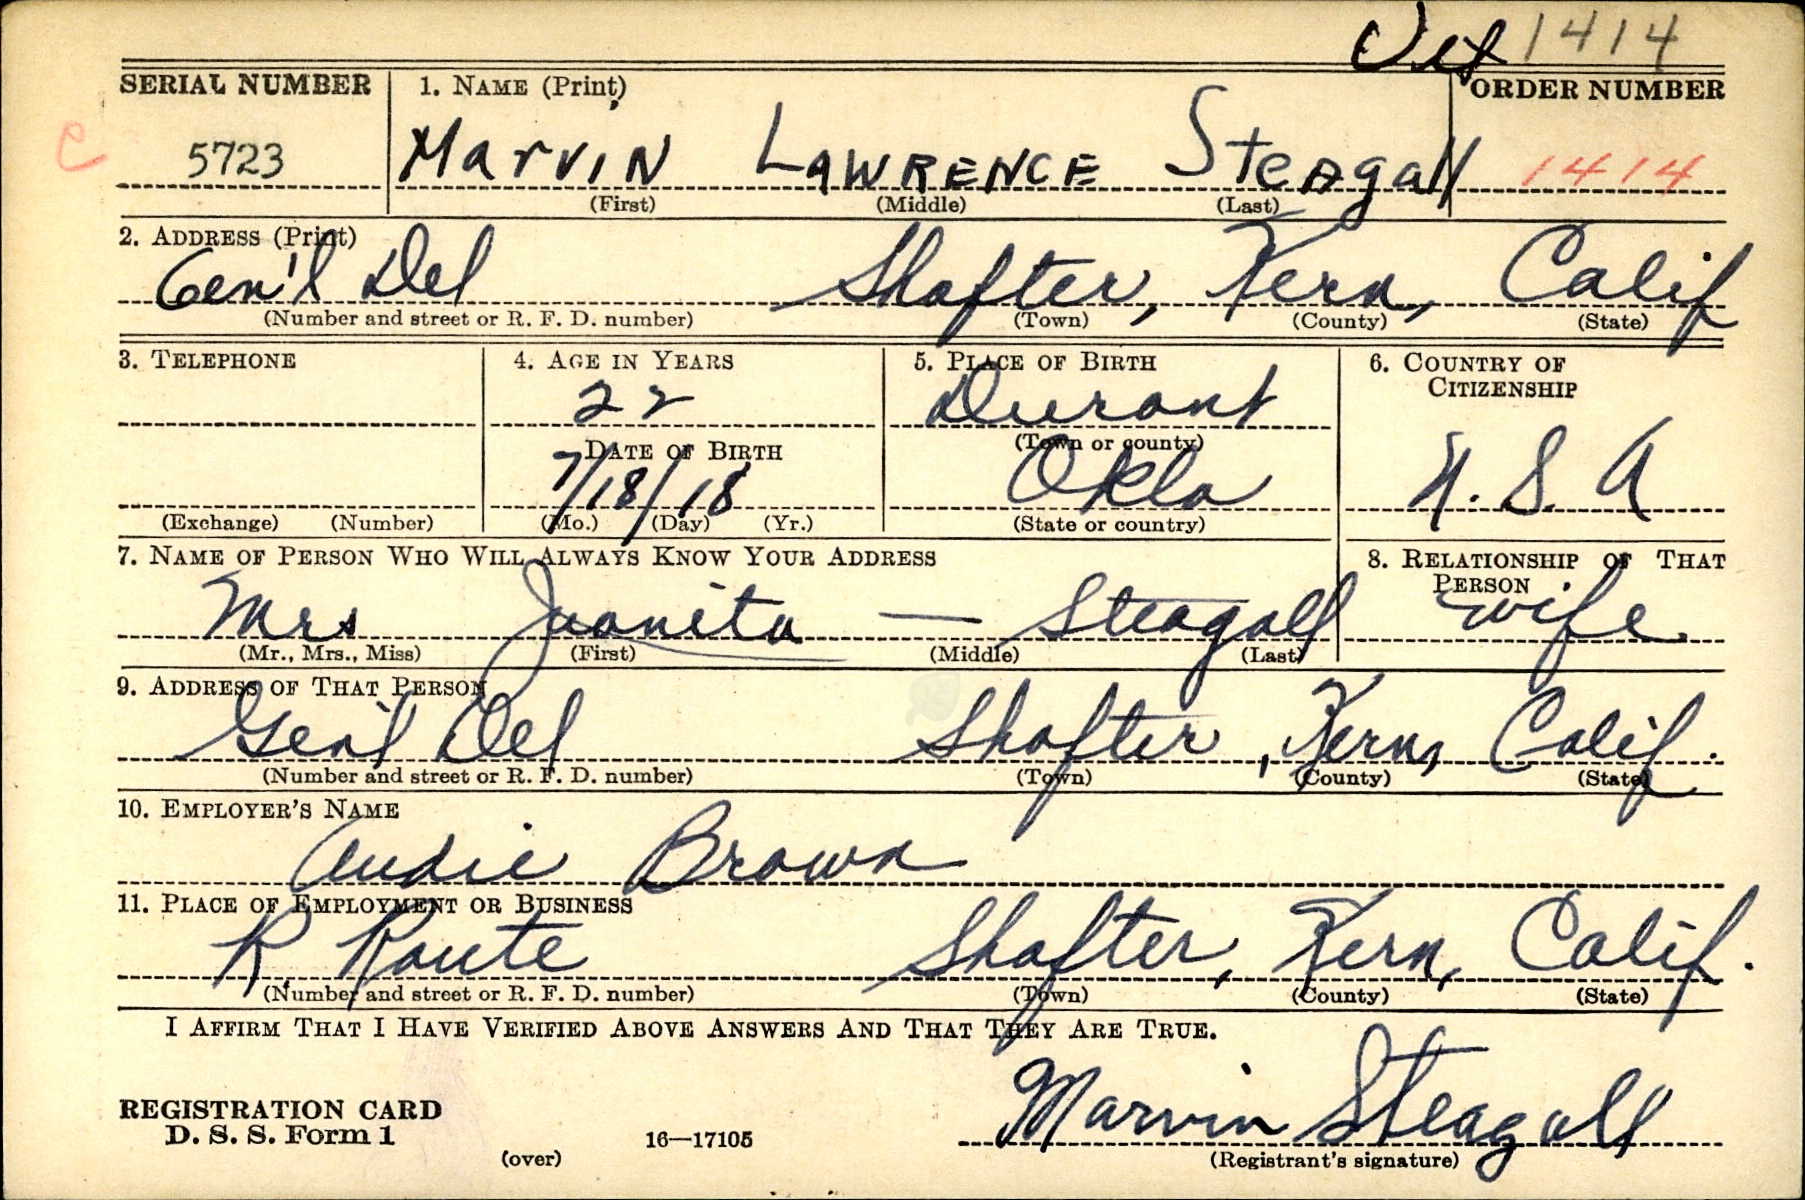 Vet 1414
SERIAL NUMBER 1. NAME (Print) ORDER NUMBER
C 5723 Marvin LAWRENCE Steagall 1414
(First) (Middle) (Last)
2. ADDRESS (Print)
Gen'l Del Shafter, Kern, Calif
(Number and street or R. F. D. number) (Town) (County) (State)
3. TELEPHONE 4. AGE IN YEARS 5. PLACE OF BIRTH 6. COUNTRY OF CITIZENSHIP
22 Durant
DATE OF BIRTH (Town or county)
7/18/18 Okla U. S. A
(Exchange) (Number) (Mo.) (Day) (Yr.) (State or country)
7. NAME OF PERSON WHO WILL ALWAYS KNOW YOUR ADDRESS 8. RELATIONSHIP OF THAT PERSON
Mrs Juanita — Steagall wife
(Mr., Mrs., Miss) (First) (Middle) (Last)
9. ADDRESS OF THAT PERSON
Gen'l Del Shafter, Kern, Calif.
(Number and street or R. F. D. number) (Town) (County) (State)
10. EMPLOYER'S NAME
Audie Brown
11. PLACE OF EMPLOYMENT OR BUSINESS
R. Route Shafter, Kern, Calif.
(Number and street or R. F. D. number) (Town) (County) (State)
I AFFIRM THAT I HAVE VERIFIED ABOVE ANSWERS AND THAT THEY ARE TRUE.
REGISTRATION CARD Marvin Steagall
D. S. S. Form 1 16—17105
(over) (Registrant's signature)